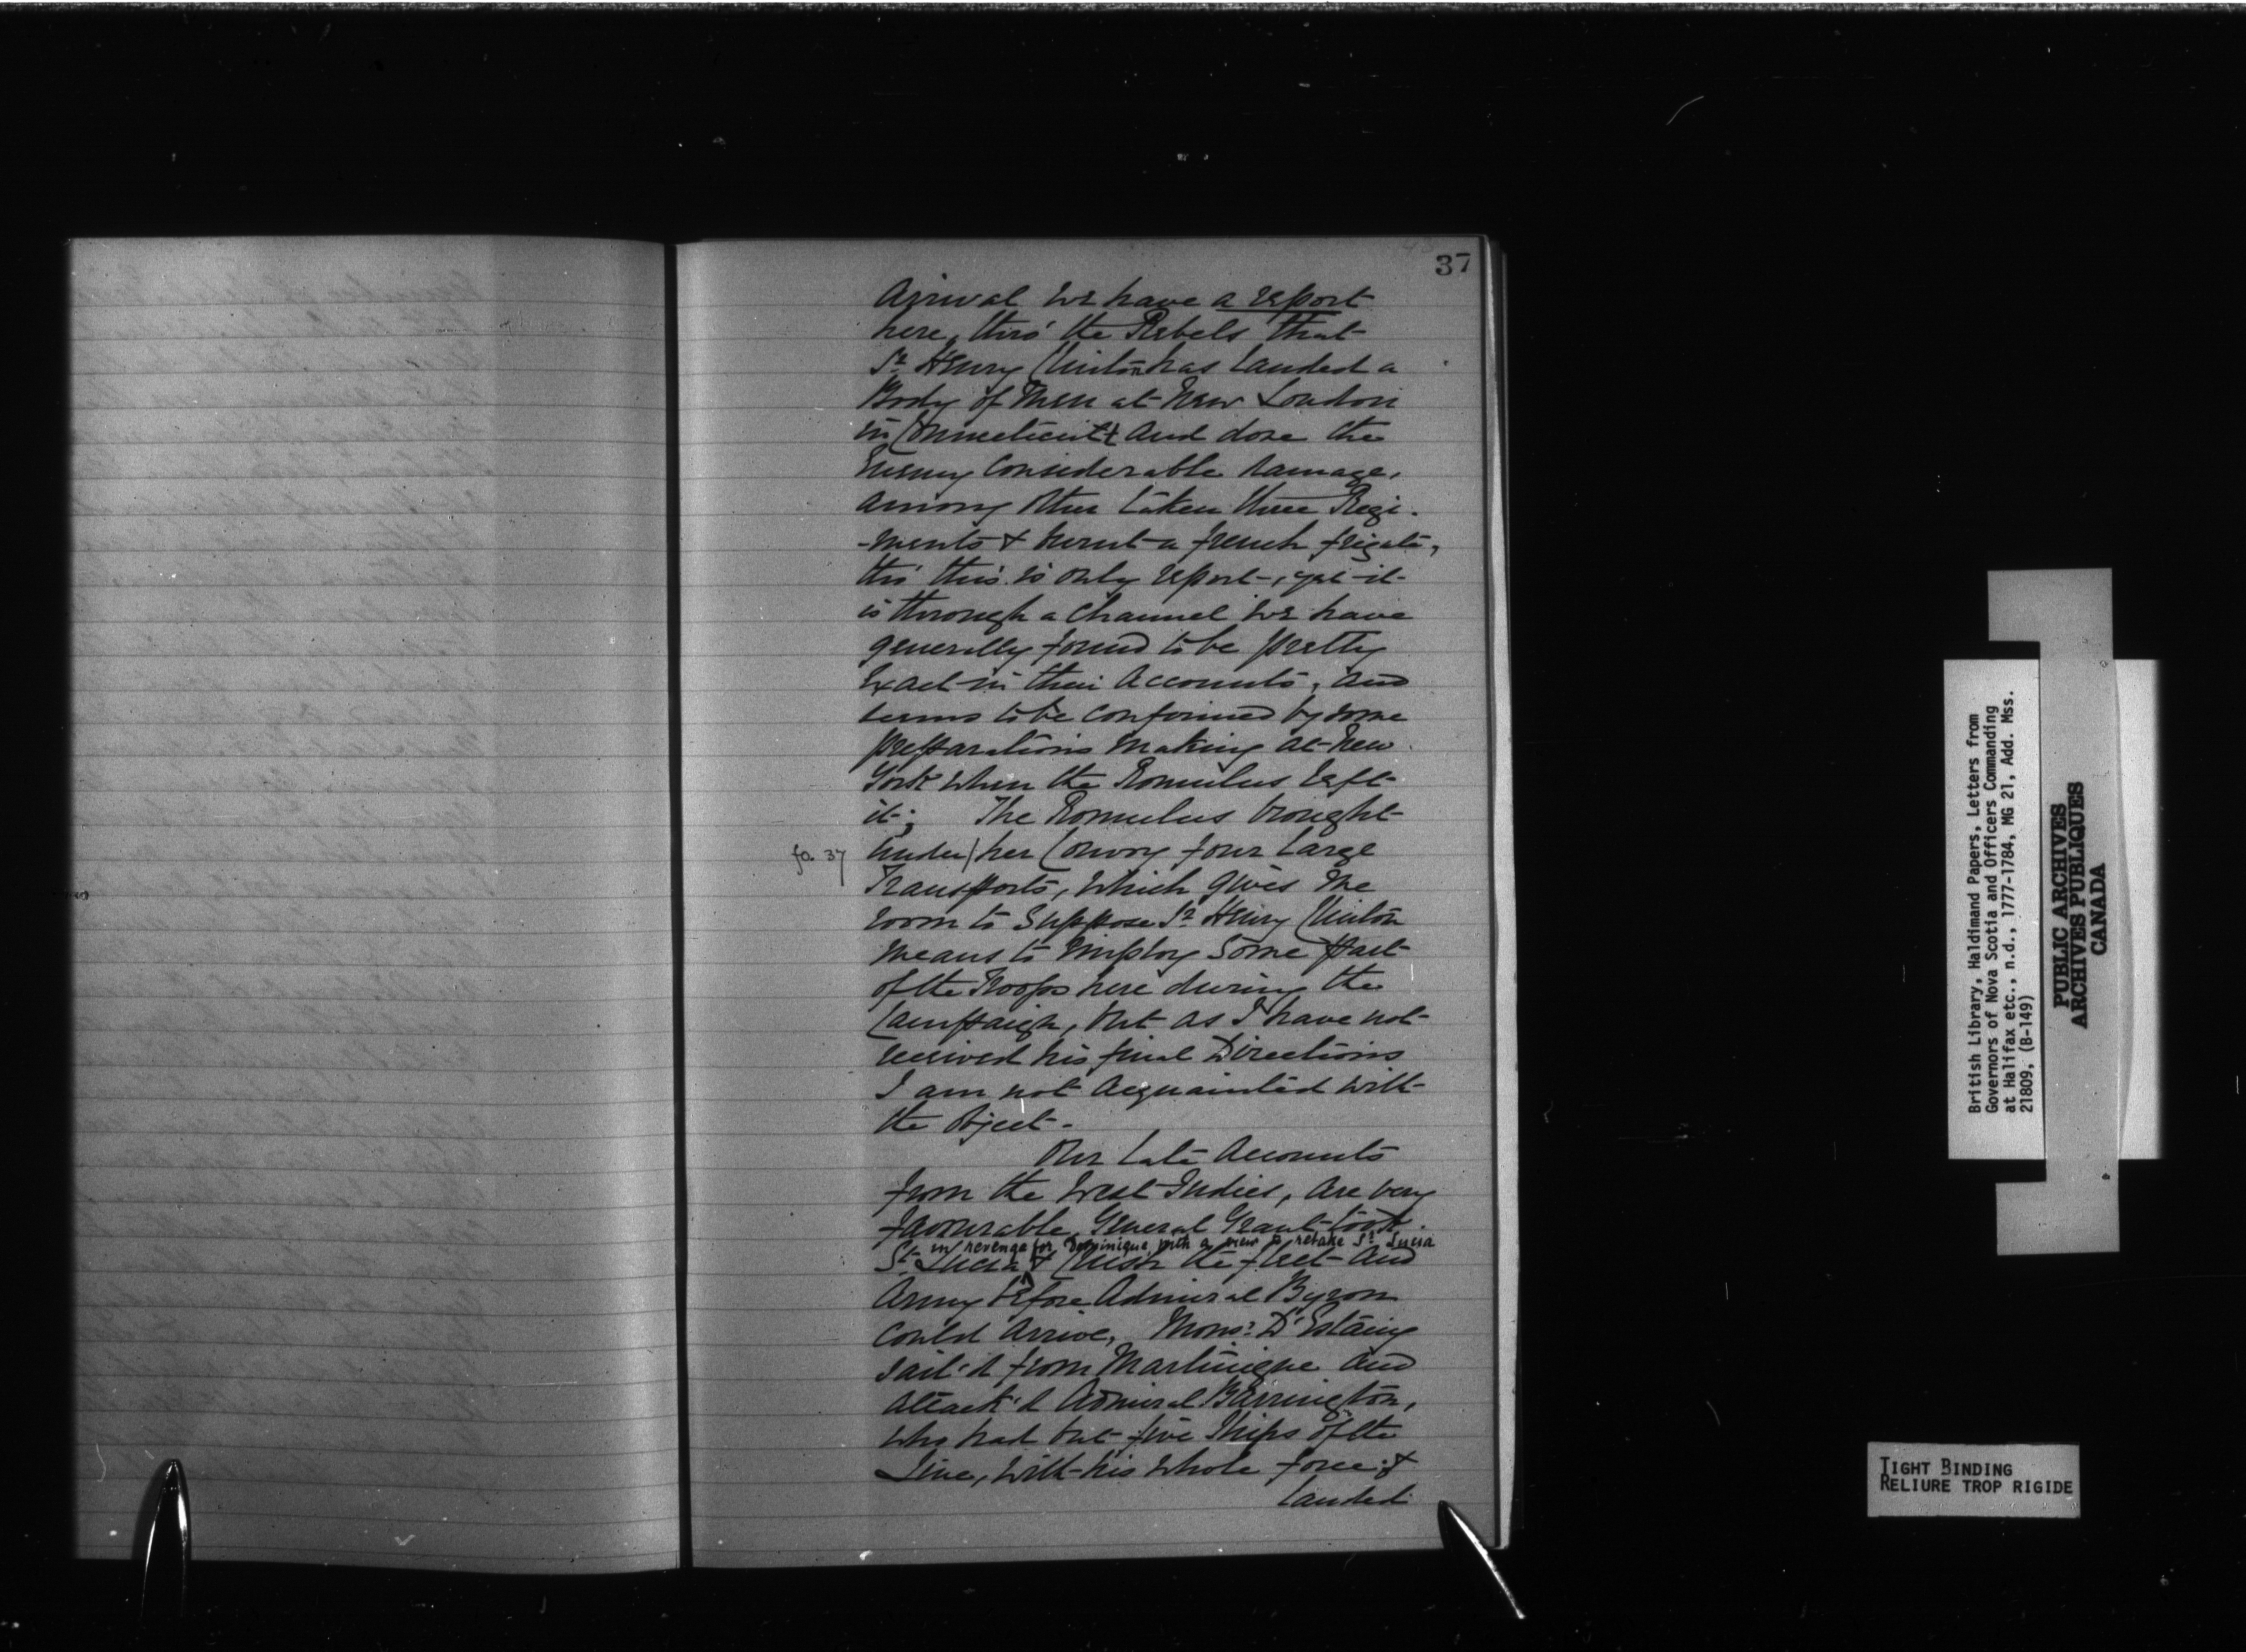 37
Arrival we have a report
here, thro' the Rebels that
Sr Henry Clinton has Landed a
Body of Men at New London
in Connecticutt and done the
Enemy Considerable damage,
among other taken three Regi-
-ments & burnt a french frigate,
tho' this is only report, yet it
is through a Channel we have
generally found to be pretty
Exact in their Accounts, and
seems to be confirmed by some
preparations making at New
York when the Romulus left
it; The Romulus brought
fo. 37
under / her Convoy four Large
Transports, which gives me
room to Suppose Sr Henry Clinton
means to Employ Some part
of the Troops here during the
Campaign, but as I have not
received his final Directions
I am not Acquainted with
the Object.
Our Late Accounts
from the West Indies, are very
favourable General Grant took
in revenge for Dominique, with a view to retake St Lucia
St Lucia & the fleet and
Army before Admiral Byron
Could Arrive, Monsr D'Estaing
sail'd from Martinique and
attack'd Admiral Barrington,
who had but five Ships of the
Line, with his whole force, &
Landed
British Library, Haldimand Papers, Letters from
Governors of Nova Scotia and Officers Commanding
at Halifax etc., n.d., 1777-1784, MG 21, Add. Mss.
21809, (B-149)
PUBLIC ARCHIVES
ARCHIVES PUBLIQUES
CANADA
TIGHT BINDING
RELIURE TROP RIGIDE